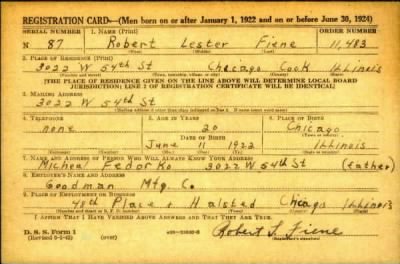 REGISTRATION CARD—(Men born on or after January 1, 1922 and on or before June 30, 1924)
SERIAL NUMBER 1. NAME (Print) ORDER NUMBER
N 87 Robert Lester Fiene 11,483
2. PLACE OF RESIDENCE (Print)
3022 W 54th St Chicago Cook Illinois
(Number and street) (Town, township, village, or city) (County) (State)
[THE PLACE OF RESIDENCE GIVEN ON THE LINE ABOVE WILL DETERMINE LOCAL BOARD
JURISDICTION; LINE 2 OF REGISTRATION CERTIFICATE WILL BE IDENTICAL]
3. MAILING ADDRESS
3022 W 54th St
4. TELEPHONE 5. AGE IN YEARS 6. PLACE OF BIRTH
none 20 Chicago
DATE OF BIRTH
June 11 1922 Illinois
7. NAME AND ADDRESS OF PERSON WHO WILL ALWAYS KNOW YOUR ADDRESS
Micheal Fedorko 3022 W 54th St (father)
8. EMPLOYER'S NAME AND ADDRESS
Goodman Mfg. Co.
9. PLACE OF EMPLOYMENT OR BUSINESS
48th Place & Halsted Chicago Illinois
(Number and street or R. F. D. number) (Town) (County) (State)
I AFFIRM THAT I HAVE VERIFIED ABOVE ANSWERS AND THAT THEY ARE TRUE.
D. S. S. Form 1
Robert L. Fiene